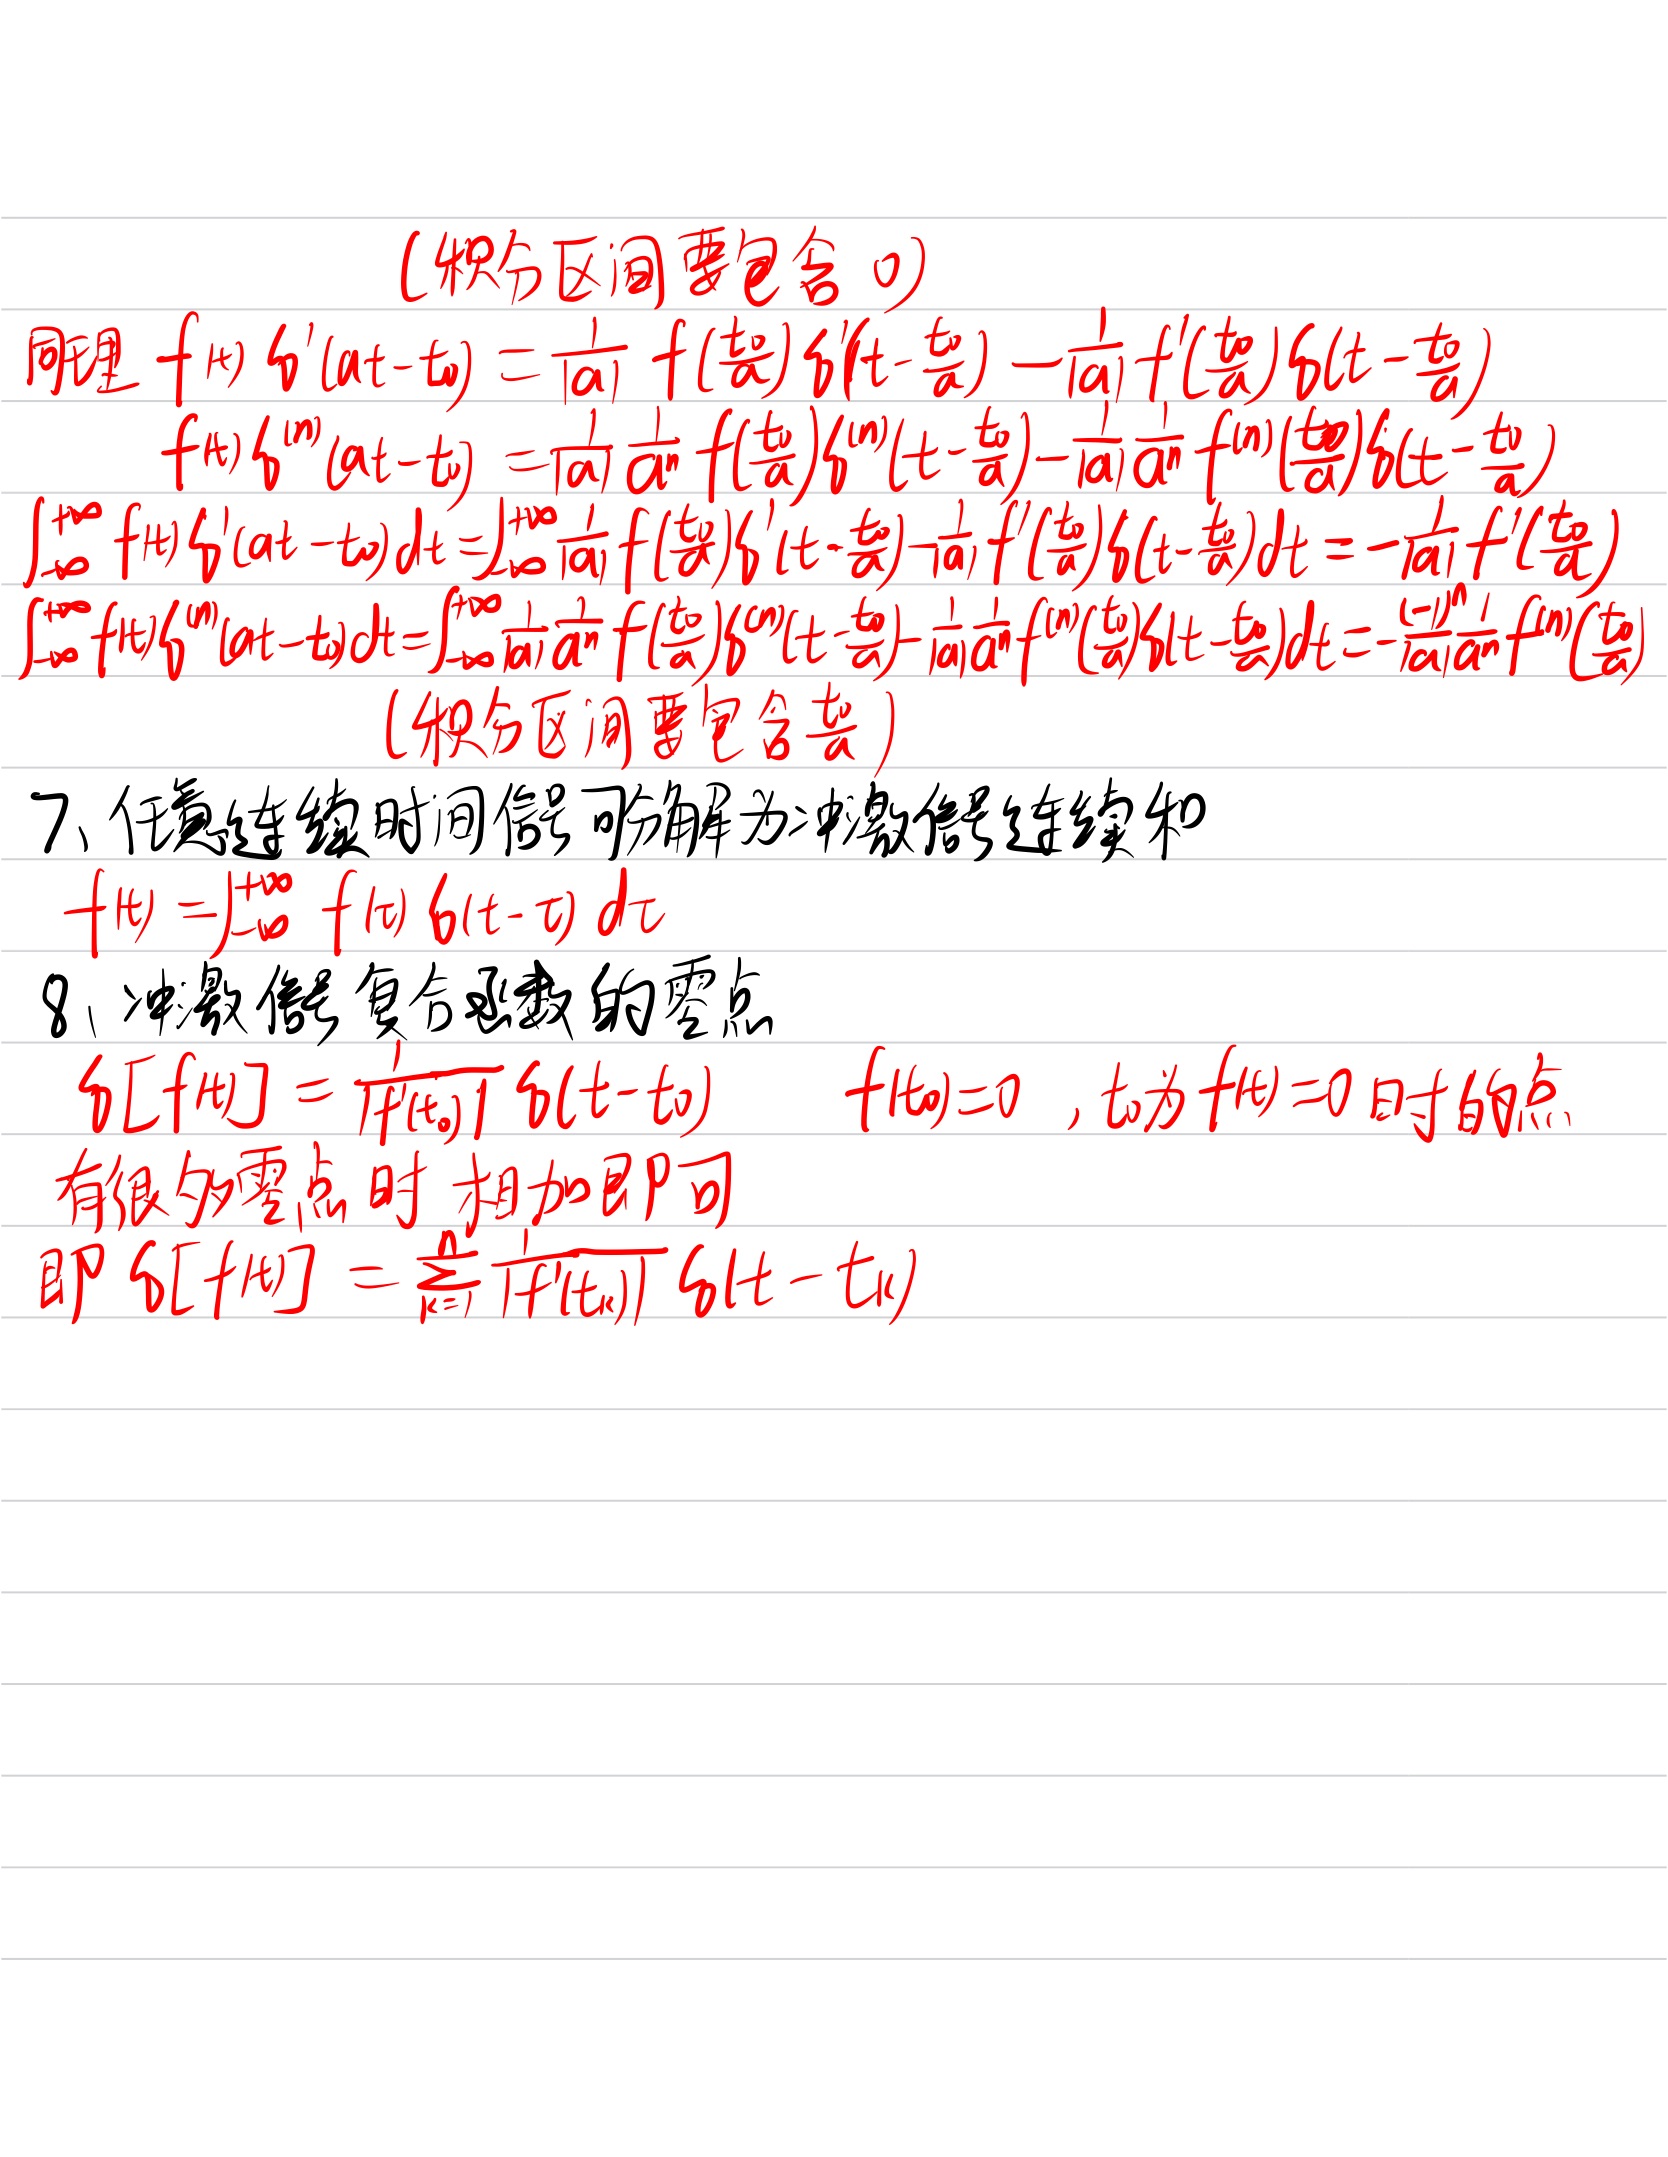 (积分区间要包含0)
同理 f(t)δ'(at-t₀) = 1/|a| f(t₀/a)δ'(t-t₀/a) - 1/|a| f'(t₀/a)δ(t-t₀/a)
f(t)δ⁽ⁿ⁾(at-t₀) = 1/|a| 1/aⁿ f(t₀/a)δ⁽ⁿ⁾(t-t₀/a) - 1/|a| 1/aⁿ f⁽ⁿ⁾(t₀/a)δ(t-t₀/a)
∫_{-∞}^{+∞} f(t)δ'(at-t₀)dt = ∫_{-∞}^{+∞} 1/|a| f(t₀/a)δ'(t-t₀/a) - 1/|a| f'(t₀/a)δ(t-t₀/a)dt = -1/|a| f'(t₀/a)
∫_{-∞}^{+∞} f(t)δ⁽ⁿ⁾(at-t₀)dt = ∫_{-∞}^{+∞} 1/|a| 1/aⁿ f(t₀/a)δ⁽ⁿ⁾(t-t₀/a) - 1/|a| 1/aⁿ f⁽ⁿ⁾(t₀/a)δ(t-t₀/a)dt = -(-1)ⁿ/|a| 1/aⁿ f⁽ⁿ⁾(t₀/a)
(积分区间要包含t₀/a)
7、任意连续时间信号可分解为冲激信号连续和
f(t) = ∫_{-∞}^{+∞} f(τ)δ(t-τ)dτ
8、冲激信号复合函数的零点
δ[f(t)] = 1/|f'(t₀)| δ(t-t₀) f(t₀)=0 , t₀为f(t)=0时的点
有很多零点时相加即可
即 δ[f(t)] = Σ_{k=1}^{n} 1/|f'(t_k)| δ(t-t_k)